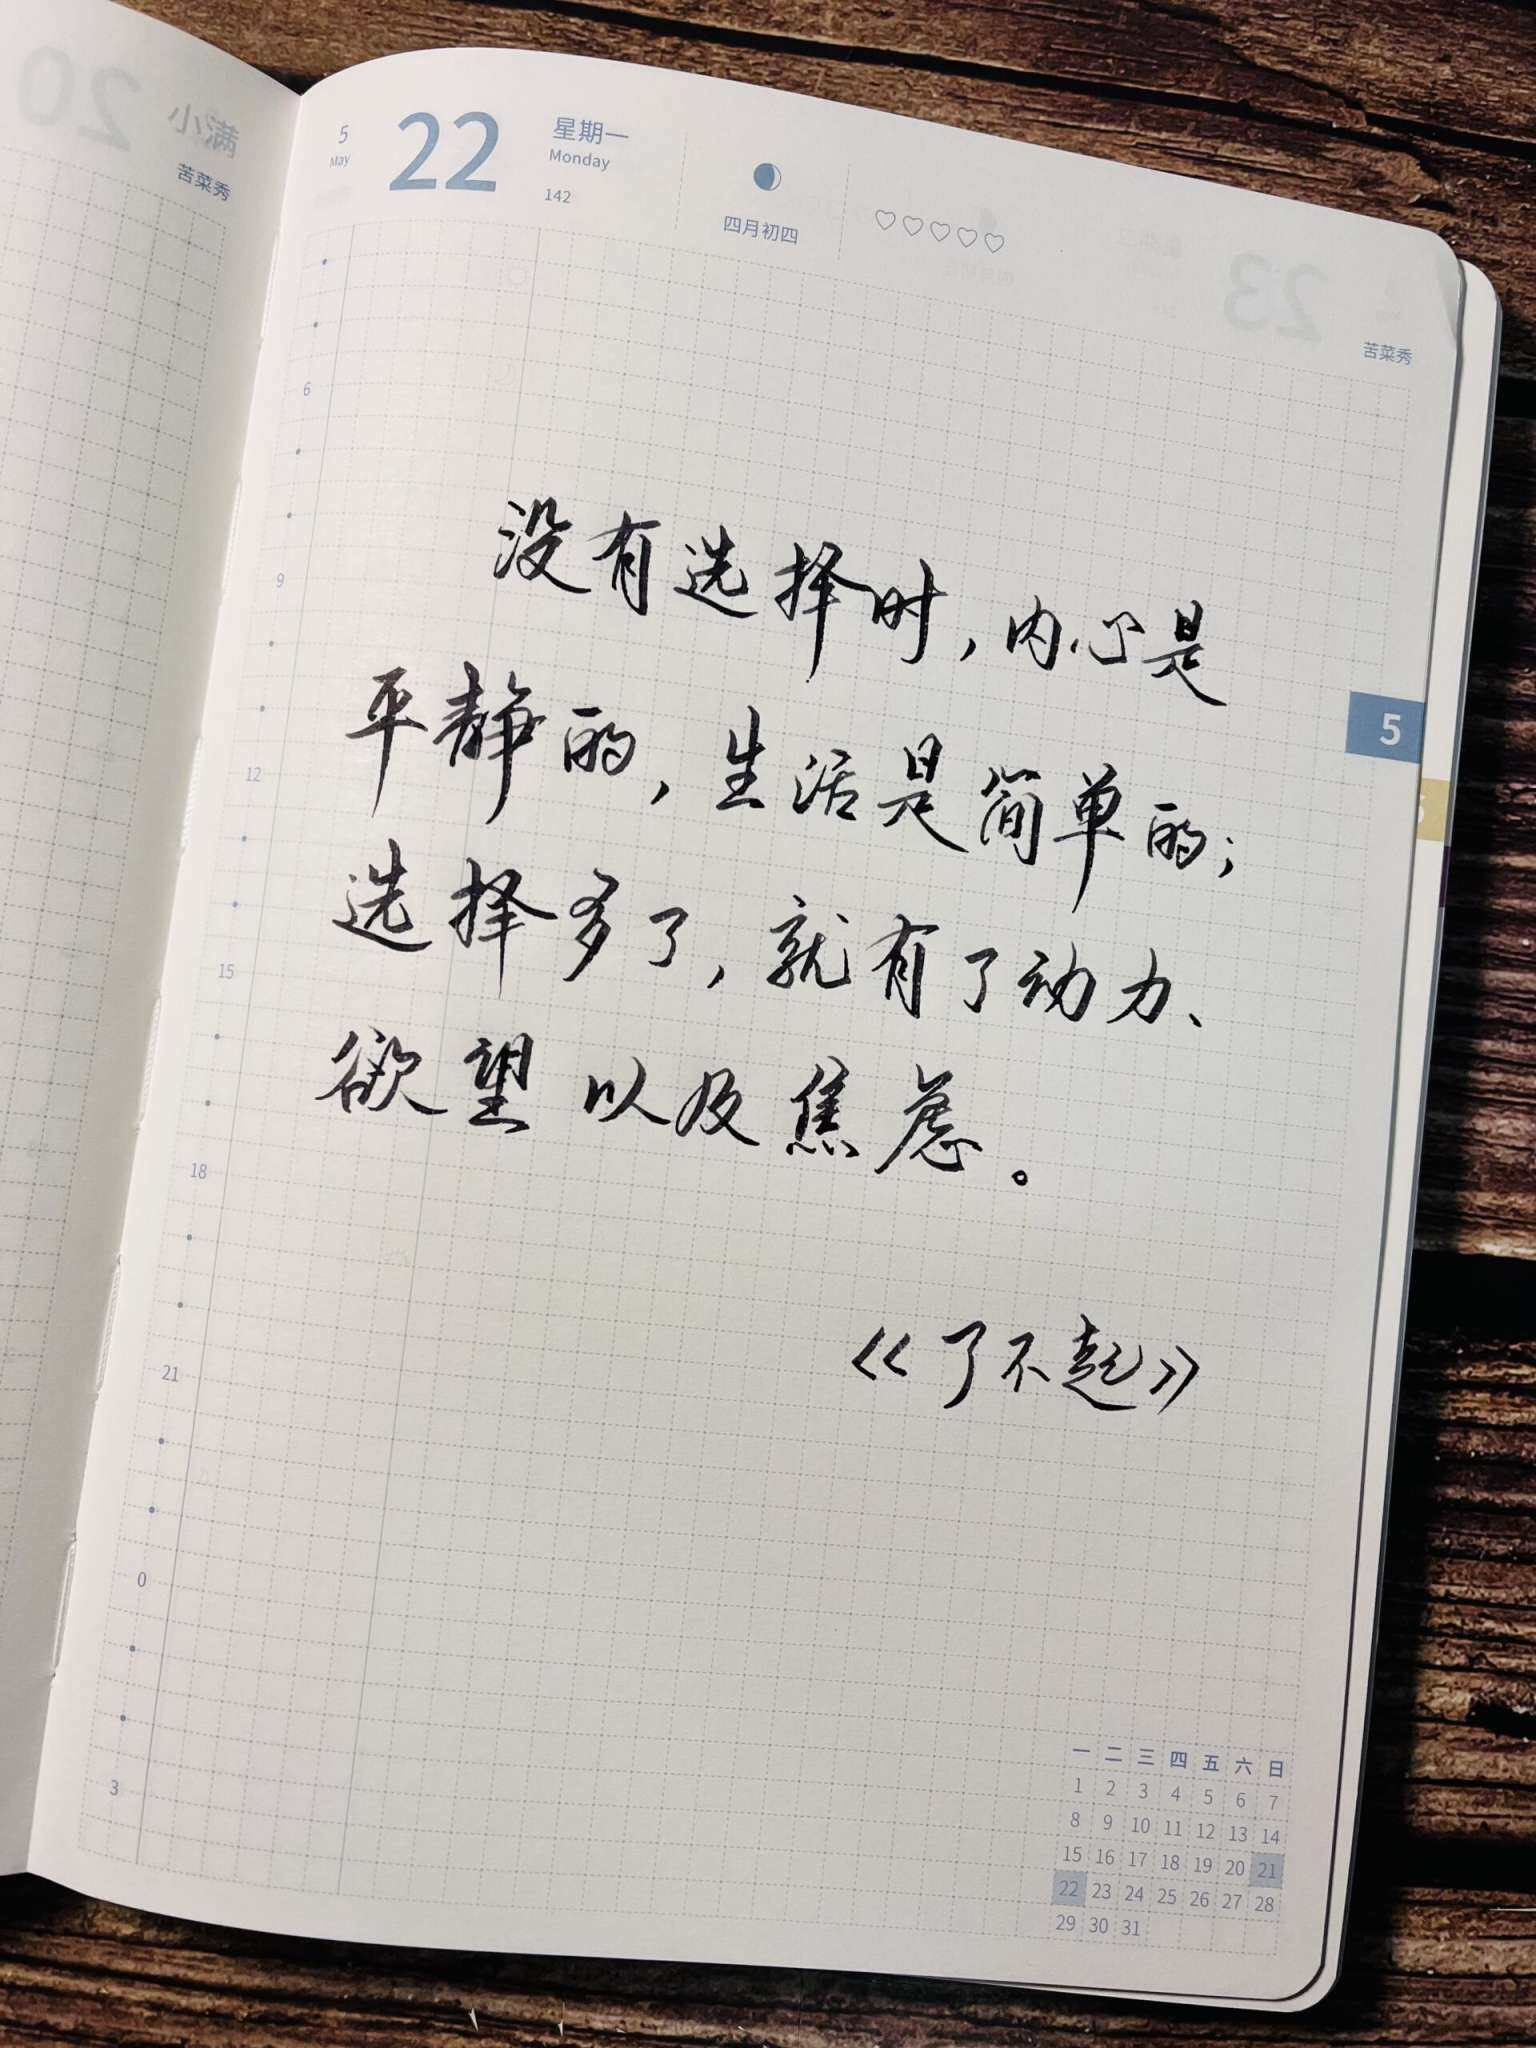 20
小满
苦菜秀
5
May
22
星期一
Monday
142
四月初四
23
苦菜秀
6
9
12
15
18
21
0
3
没有选择时，内心是
平静的，生活是简单的；
选择多了，就有了动力、
欲望以及焦虑。
《了不起》
5
一 二 三 四 五 六 日
1 2 3 4 5 6 7
8 9 10 11 12 13 14
15 16 17 18 19 20 21
22 23 24 25 26 27 28
29 30 31